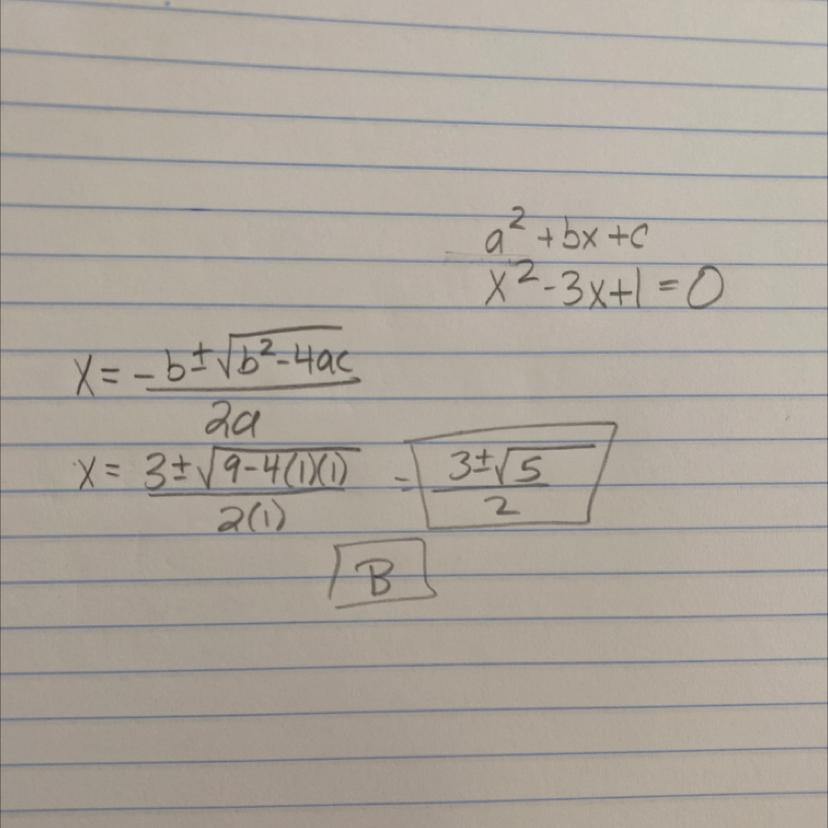 a² + bx + c
x² - 3x + 1 = 0
x = -b ± √(b² - 4ac) / 2a
x = 3 ± √(9 - 4(1)(1)) / 2(1) = 3 ± √5 / 2
B